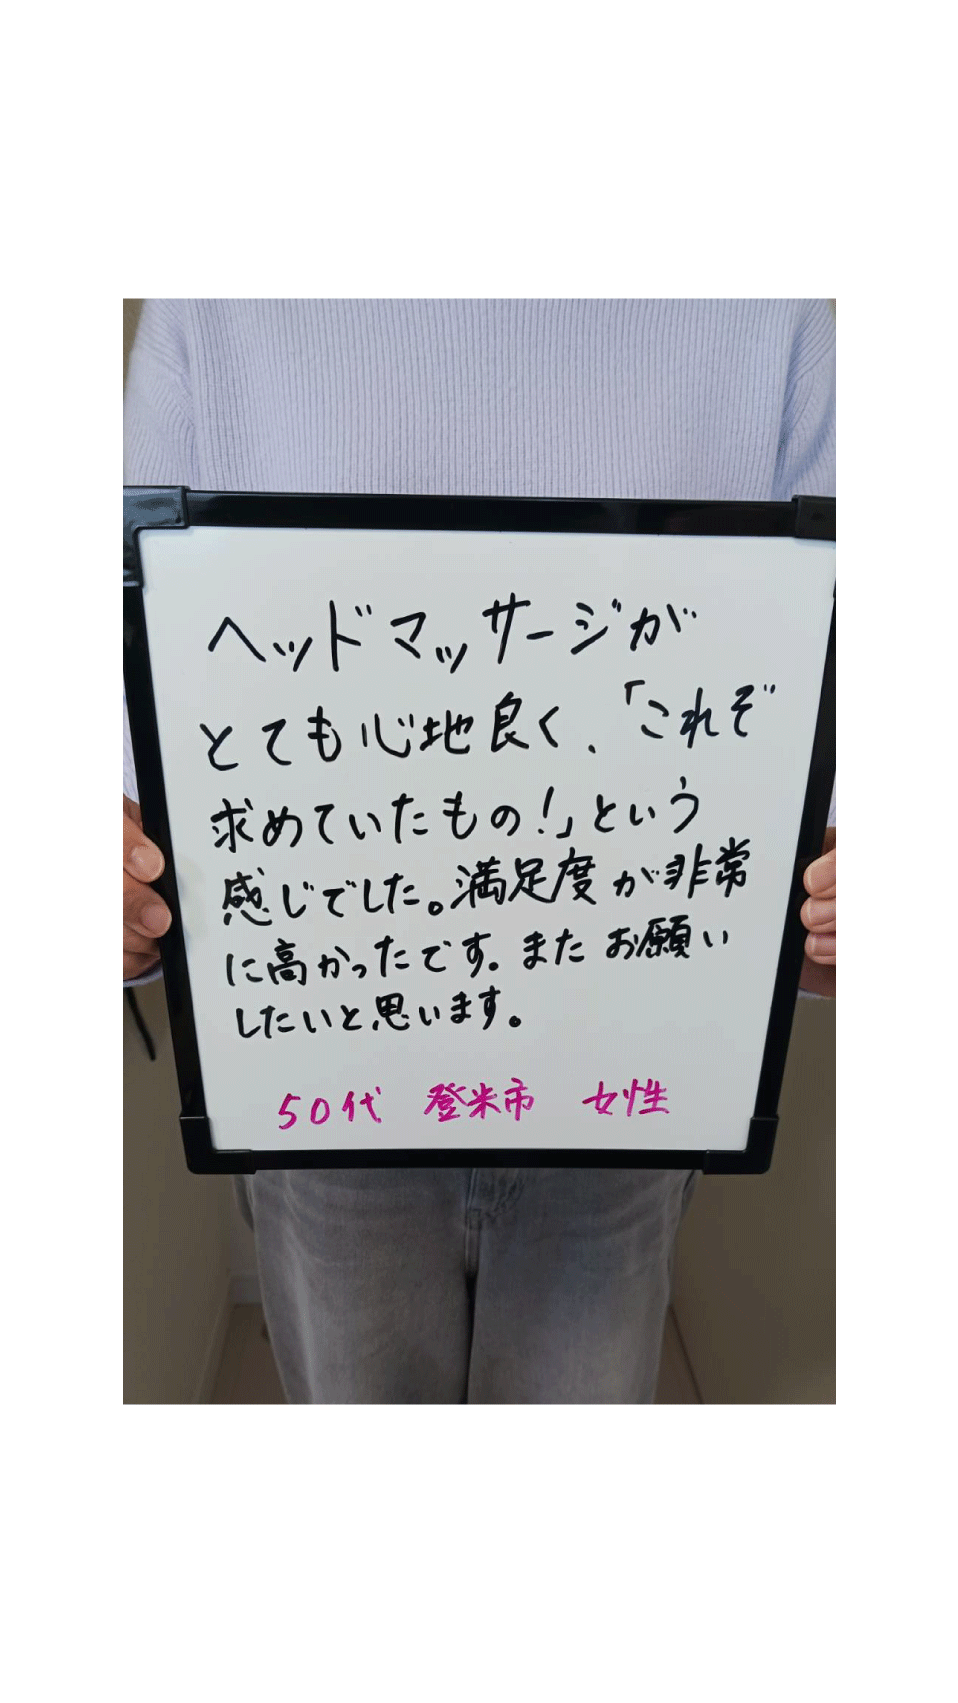 ヘッドマッサージが
とても心地良く、「これぞ
求めていたもの!」という
感じでした。満足度が非常
に高かったです。またお願い
したいと思います。
50代 登米市 女性